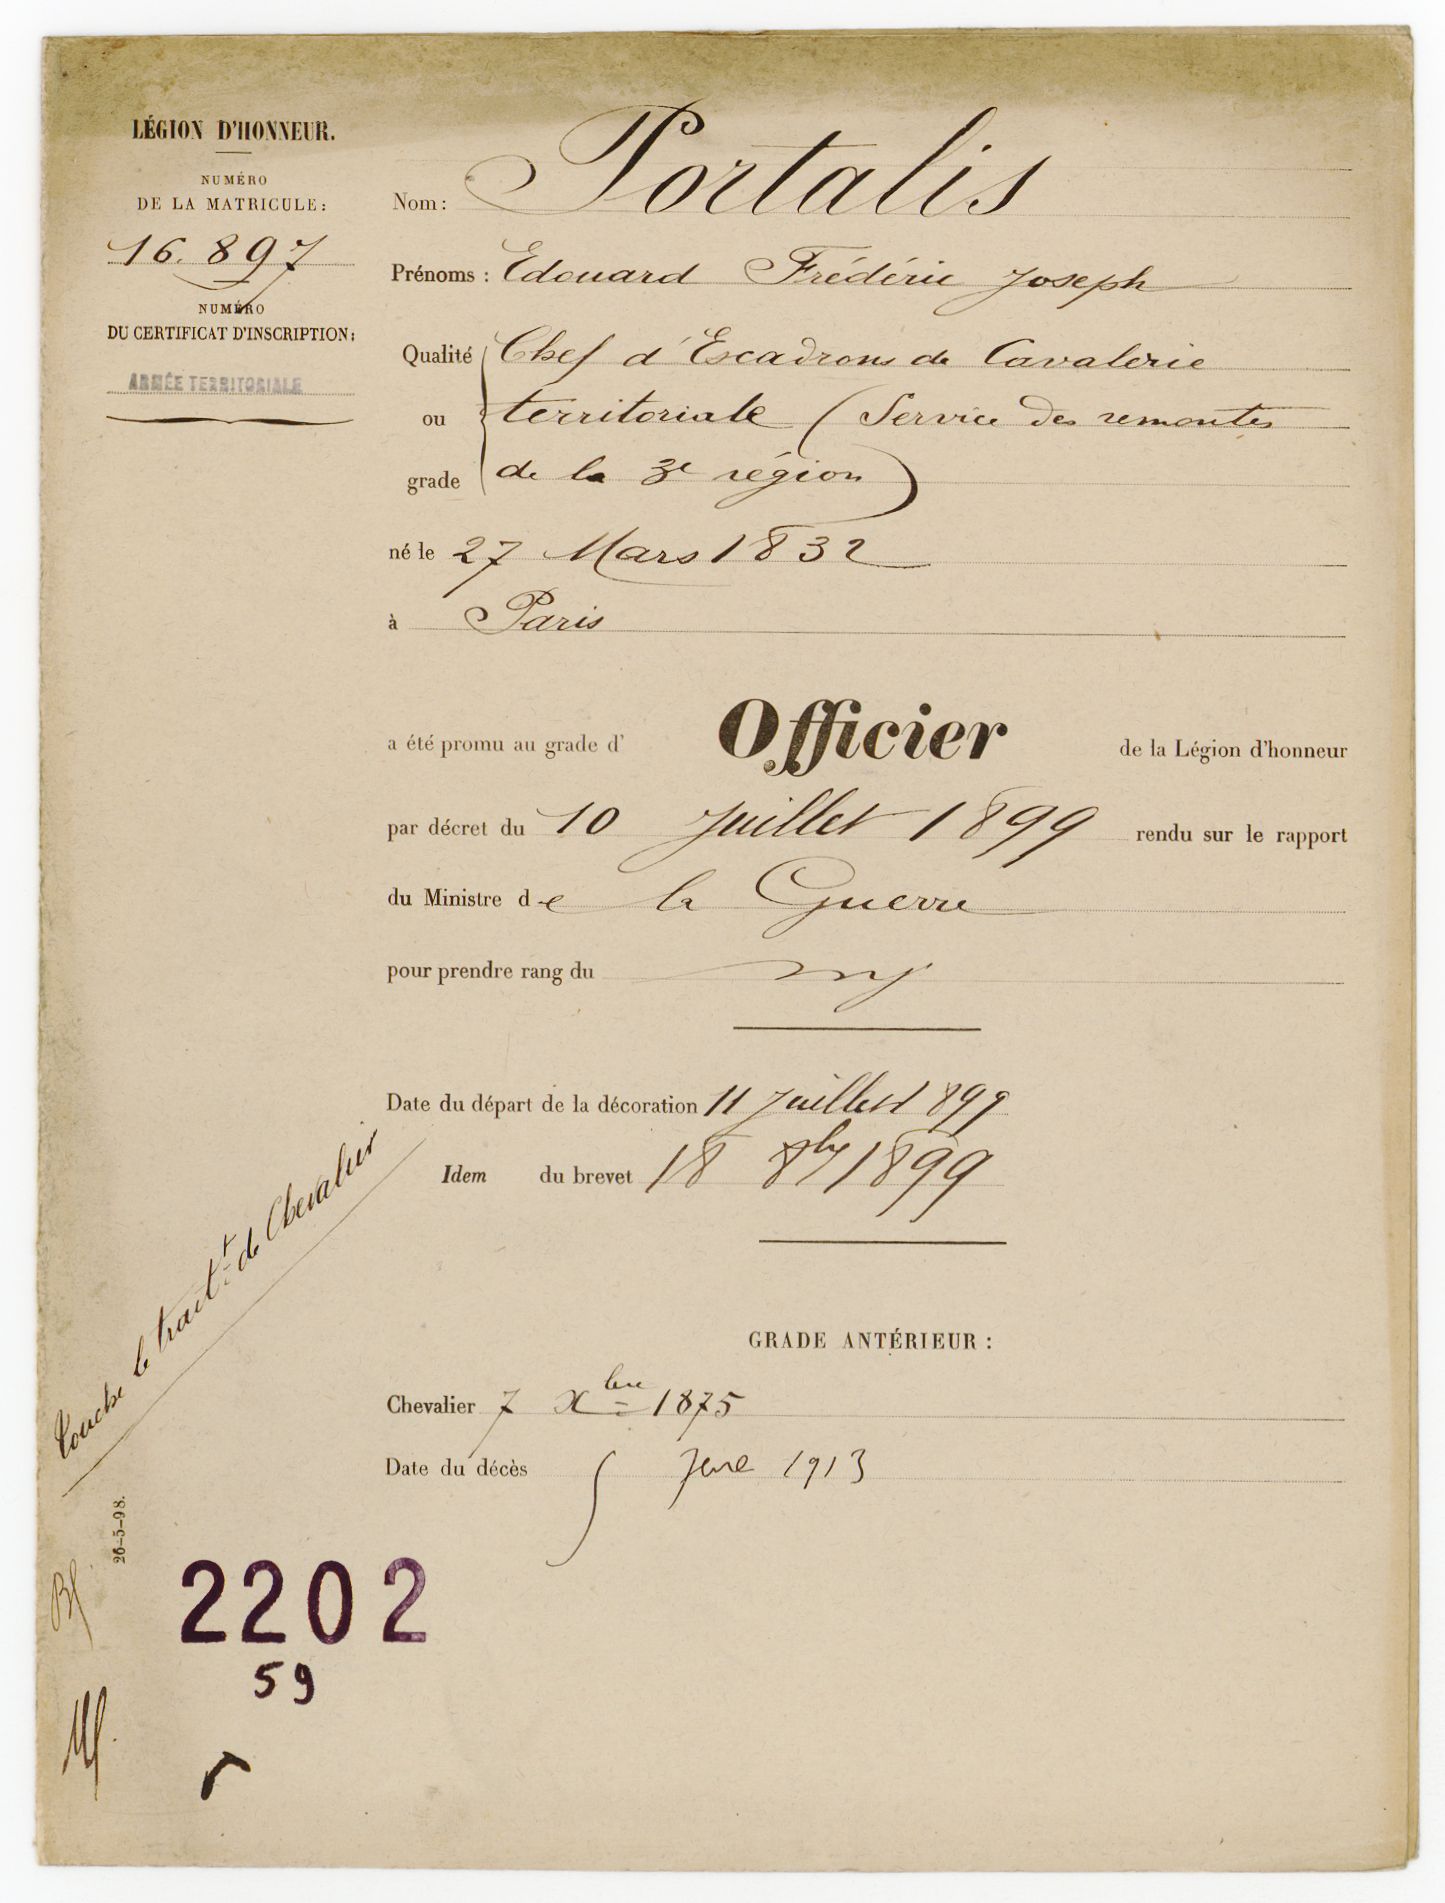 LÉGION D'HONNEUR.
NUMÉRO
DE LA MATRICULE:
16.897
NUMÉRO
DU CERTIFICAT D'INSCRIPTION:
ARMÉE TERRITORIALE
Nom: Portalis
Prénoms: Edouard Frédéric Joseph
Qualité Chef d'Escadrons de Cavalerie
ou territoriale (Service des remontes
grade de la 3e région)
né le 27 Mars 1832
à Paris
a été promu au grade d' Officier de la Légion d'honneur
par décret du 10 Juillet 1899 rendu sur le rapport
du Ministre de la Guerre
pour prendre rang du
Date du départ de la décoration 11 Juillet 1899
Idem du brevet 18 8bre 1899
Touche le trait.t de Chevalier
GRADE ANTÉRIEUR:
Chevalier 7 Xbre 1875
Date du décès 1913
26-5-98.
2202
59